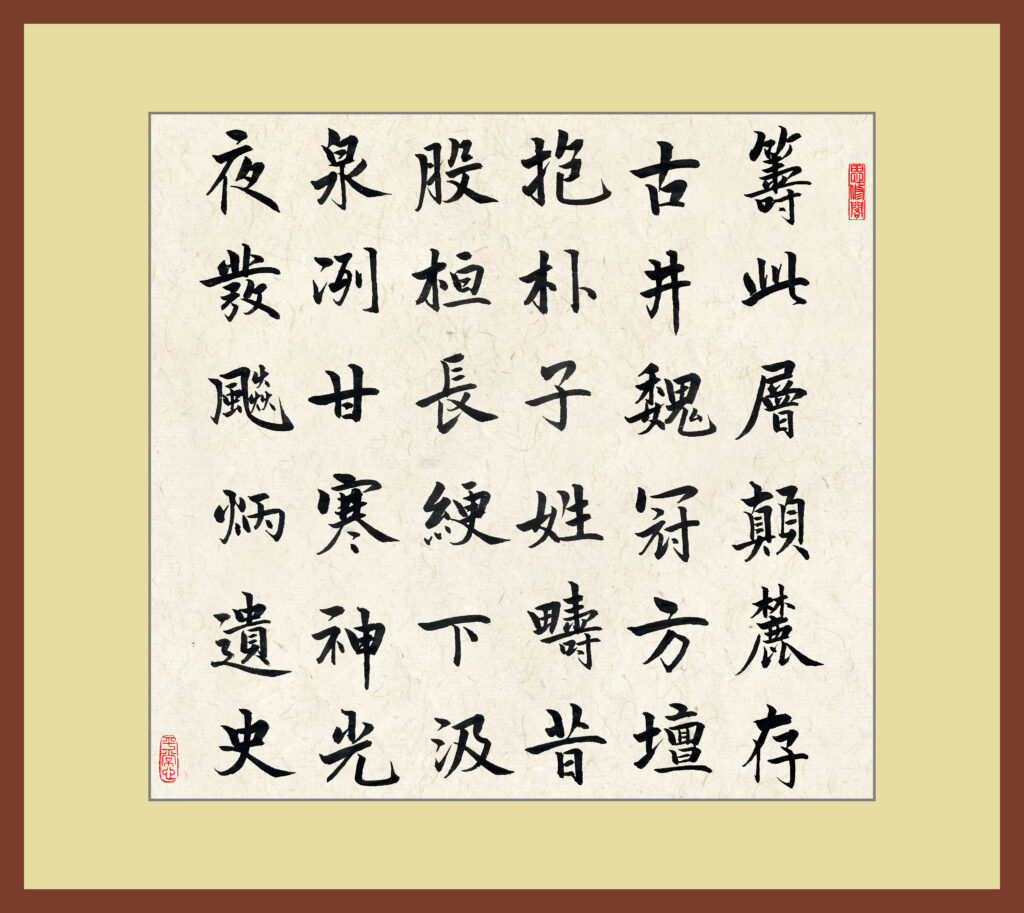 思修閣
籌此層顛麓存
古井魏冠方壇
抱朴子姓疇昔
股桓長綆下汲
泉冽甘寒神光
夜發飇炳遺史